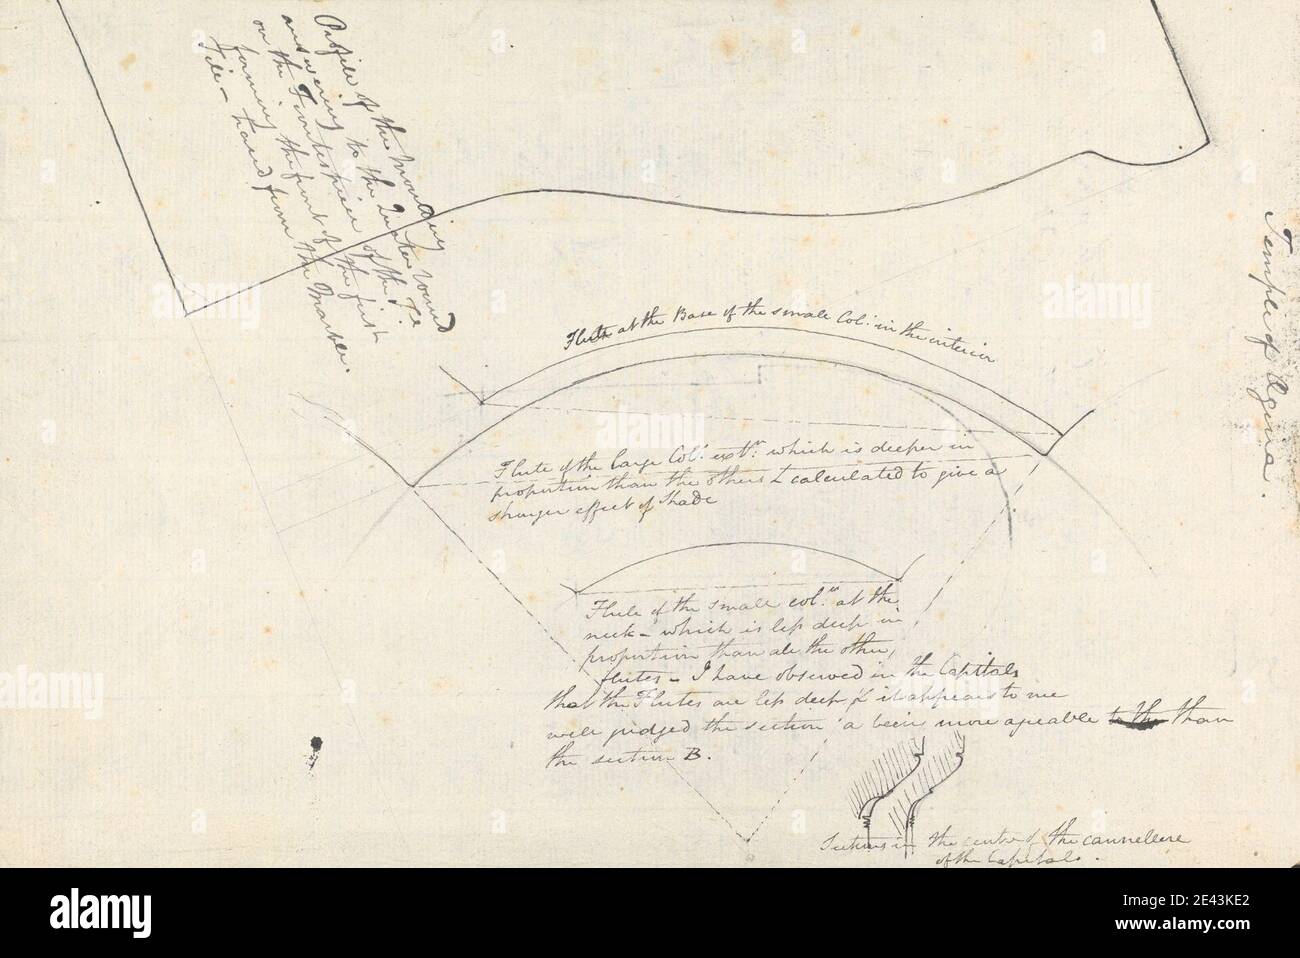 Profile of the Moulding
answering to the Quarter round
on the Frontespiece of the
forming the front of the first
Tile - traced from the Marble.
Temple of Egina.
Flute at the Base of the small Col: in the interior
Flute of the large Col: extr: which is deeper in
proportion than the others & calculated to give a
stronger effect of Shade
Flute of the small col:n at the
neck - which is less deep in
proportion than all the other
flutes - I have observed in the Capitals
that the Flutes are less deep & it appears to me
well judged the section a being more agreable to the than
the section B.
Sections in the centre of the cannellure
of the Capitals.
alamy
Image ID: 2E43KE2
www.alamy.com